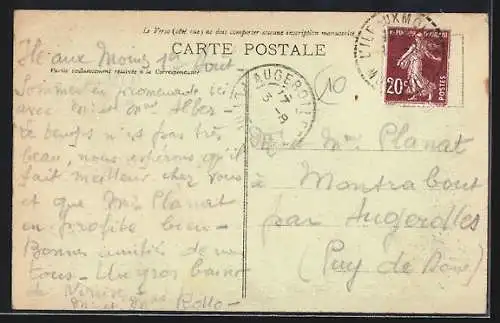 Le Verso (côté vue) ne doit comporter aucune inscription manuscrite
CARTE POSTALE
Partie exclusivement réservée à la Correspondance
Ile aux Moines 1er Août -
Sommes en promenade ici
avec Mr et Mme Alber-
Le temps n'est pas très
beau, nous espérons qu'il
fait meilleur chez vous
et que Mr Planat
en profite bien -
Bonnes amitiés de nous
tous - Un gros baiser
de
Mr et Mme Rollo -
L'ILE AUX MOINES
RF
20c
POSTES
AUGEROLLES
3 -8
10
Mr et Mme Planat
à Montrabout
par Augerolles
(Puy de Dôme)